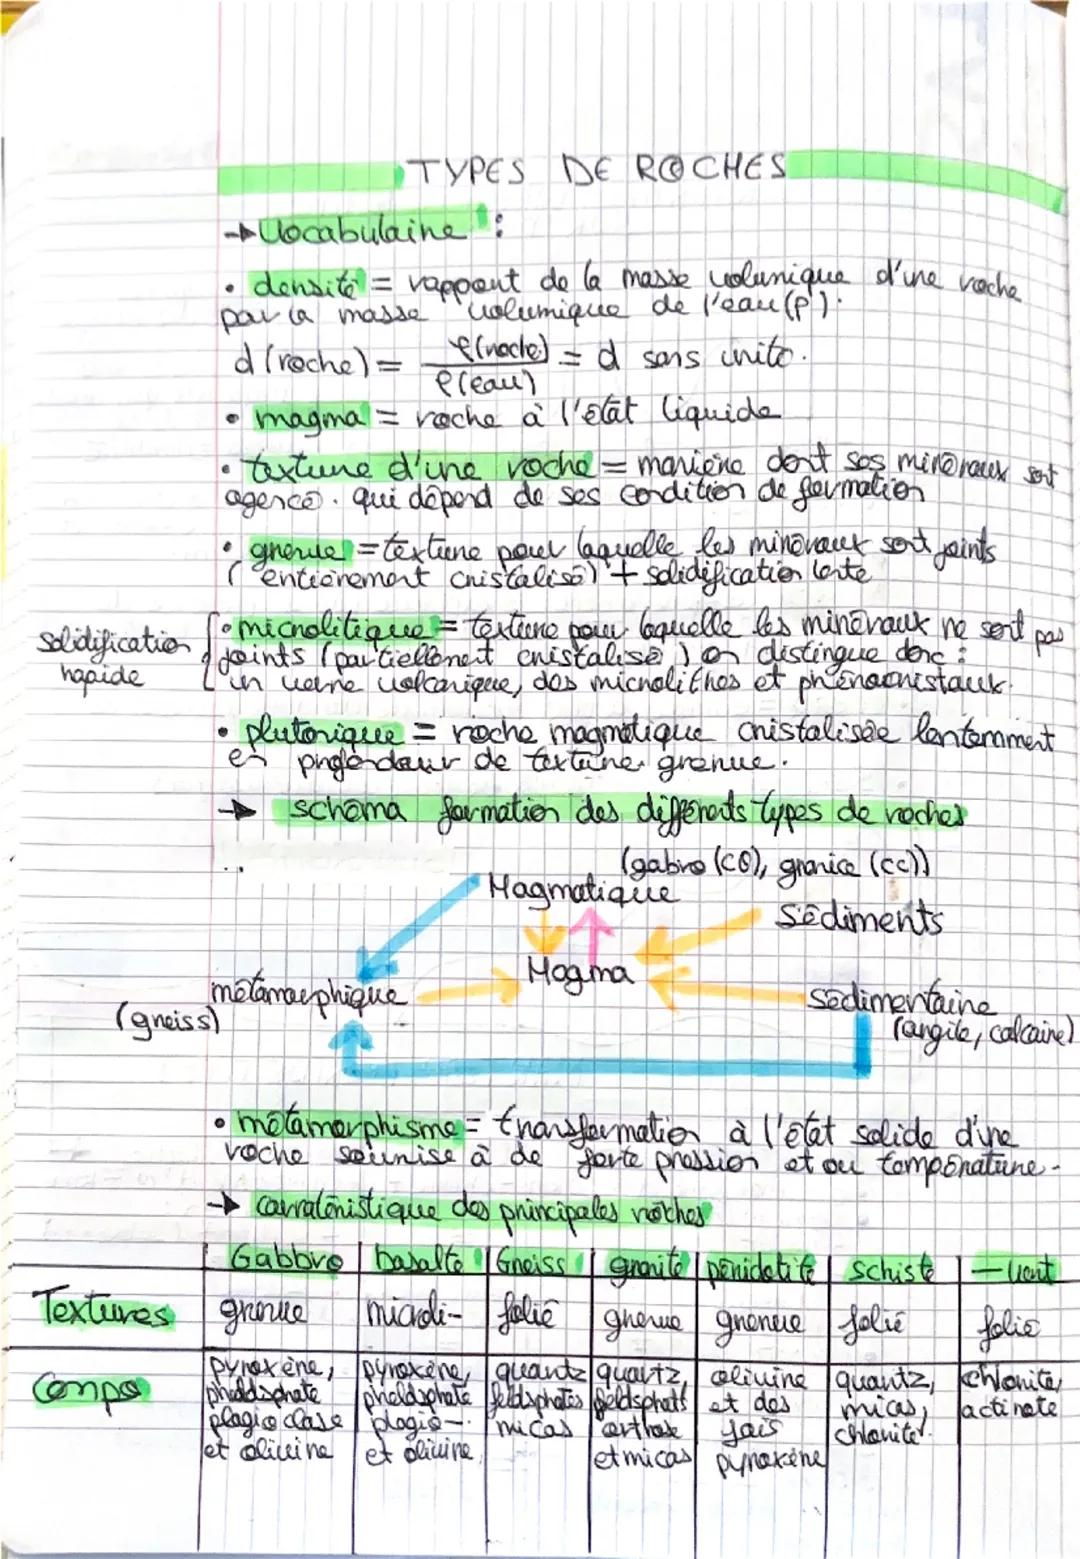 TYPES DE ROCHES
→ Vocabulaire :
• densité = rapport de la masse volumique d'une roche
par la masse volumique de l'eau (ρ).
d (roche) = ρ(roche) / ρ(eau) = d sans unité.
• magma = roche à l'état liquide
• texture d'une roche = manière dont ses minéraux sont
agencé. qui dépend de ses condition de formation
• grenue = texture pour laquelle les minéraux sont joints
(entièrement cristalisé) + solidification lente
• microlitique = texture pour laquelle les minéraux ne sont pas
joints (partiellement cristalisé) on distingue donc :
un verre volcanique, des microlithes et phénocristaux.
Solidification
rapide
• plutonique = roche magmatique cristalisée lentemment
en profondeur de texture grenue.
→ schéma formation des différents types de roches
(gabro (CO), granice (CC))
Magmatique
Sédiments
Magma
métamorphique
(gneiss)
sédimentaine
(argile, calcaire)
• métamorphisme = transformation à l'état solide d'une
roche soumise à de forte pression et ou température.
→ carratéristique des principales roches
Gabbro | basalte | Gneiss | granite | péridotite | schiste | — vert
Textures | grenue | microli- | folié | grenue | grenue | folié | folié
Compo | pyroxène, | pyroxène, | quartz | quartz, | olivine | quartz, | chlorite,
pheldsphate | pheldsphate | feldsphates | feldsphats | et des | micas, | actinote
plagioclase | plagio-. | micas | orthose | fois | chlorite.
et olivine | et olivine | et micas | pyroxène